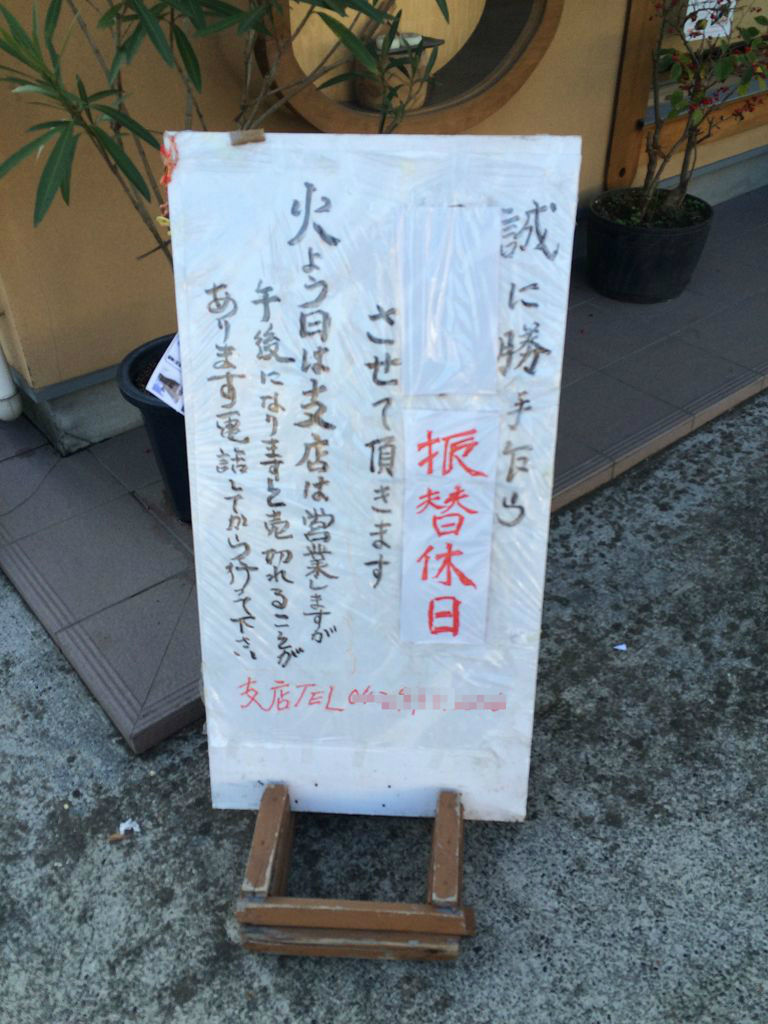 誠に勝手乍ら
振替休日
させて頂きます
火よう日は支店は営業しますが
午後になりますと売切れることが
あります電話してから行って下さい
支店TEL